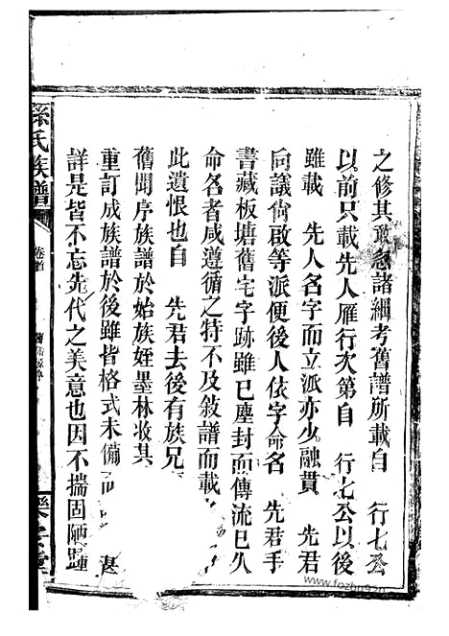 之修其敢怠諸綱考舊譜所載自　行七公
以前只載先人雁行次第自　行七公以後
雖載　先人名字而立派亦少融貫　先君
向議尙啟等派便後人依字命名　先君手
書藏板塘舊宅字跡雖已塵封而傳流已久
命名者咸遵循之特不及敍譜而載
此遺恨也自　先君去後有族兄
舊聞序族譜於始族姪墨林收其
重訂成族譜於後雖皆格式未備
詳是皆不忘先代之美意也因不揣固陋踵
孫氏族譜
卷首
樂
www.fozhu920.com